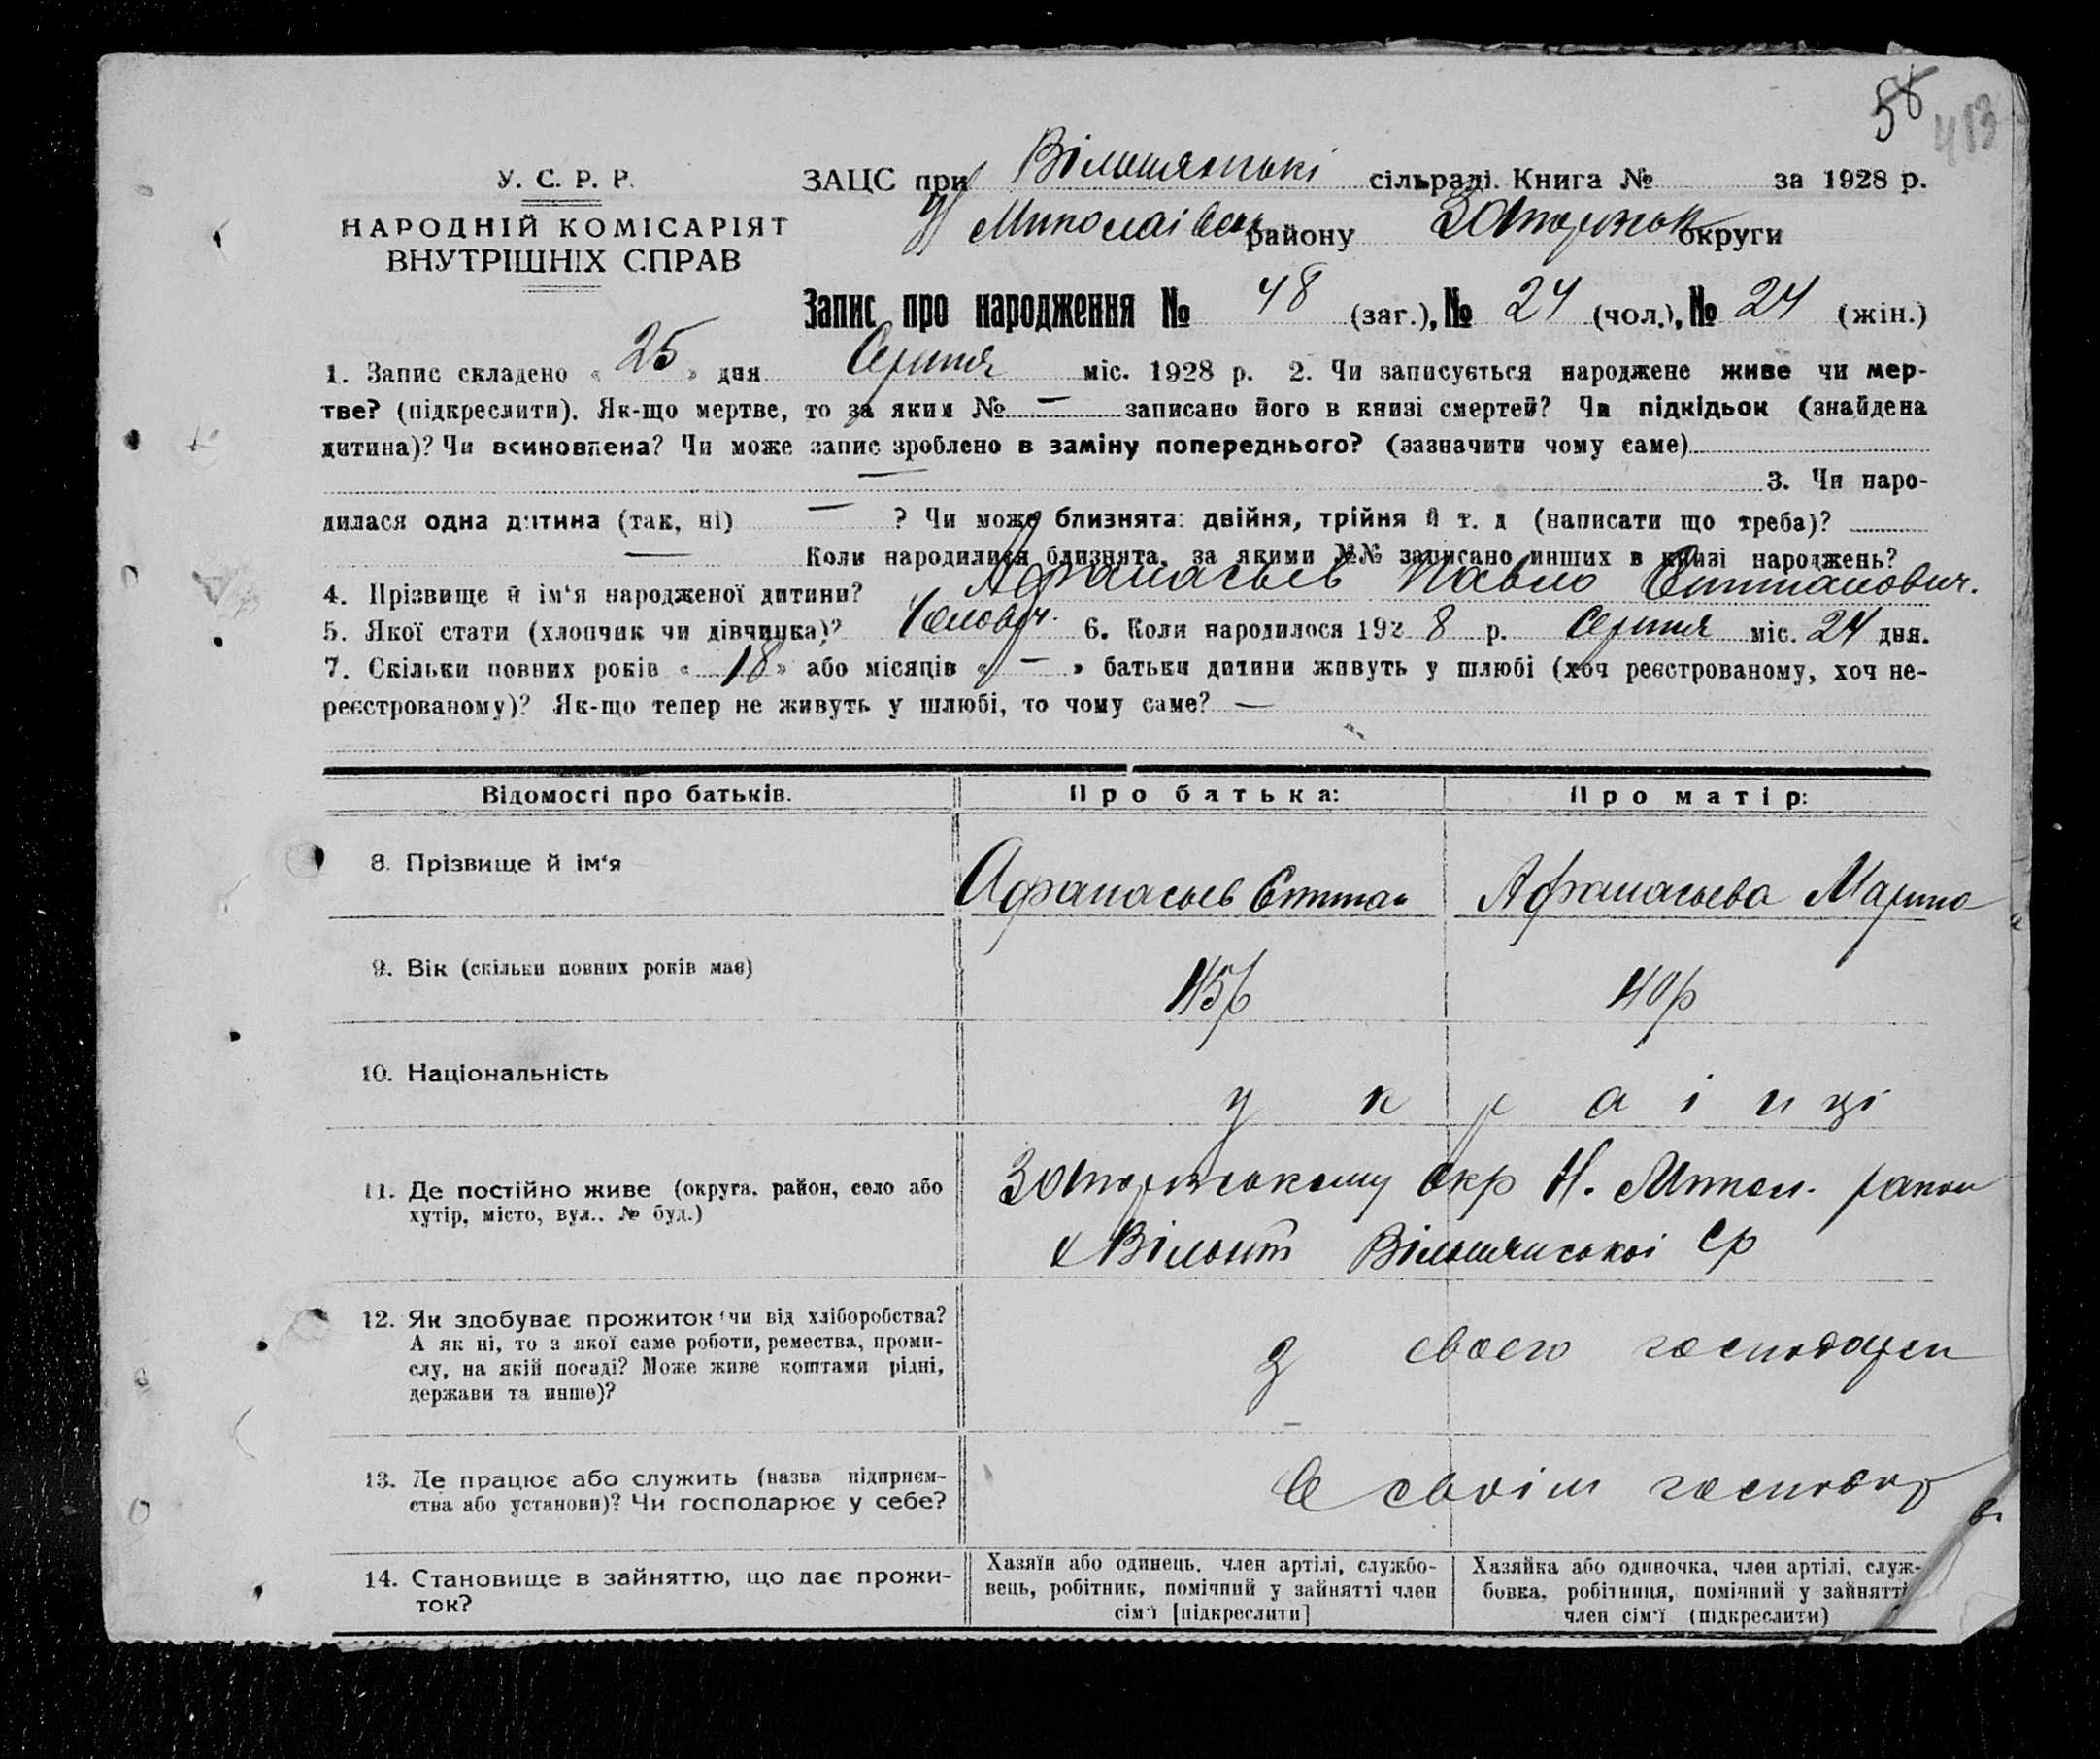 58
413
У. С. Р. Р.
НАРОДНІЙ КОМІСАРІЯТ
ВНУТРІШНІХ СПРАВ
ЗАЦС при Вільшянські сільраді. Книга № за 1928 р.
Миколаівськ району округи
Запис про народження № 48 (заг.), № 24 (чол.), № 24 (жін.)
1. Запис складено « 25 » дня Серпня міс. 1928 р. 2. Чи записується народжене живе чи мер-
тве? (підкреслити). Як-що мертве, то за яким № — записано його в книзі смертей? Чи підкідьок (знайдена
дитина)? Чи всиновлена? Чи може запис зроблено в заміну попереднього? (зазначити чому саме)
— 3. Чи наро-
дилася одна дитина (так, ні) — ? Чи може близнята: двійня, трійня й т. д (написати що треба)?
— Коли народилися близнята, за якими №№ записано инших в книзі народжень?
4. Прізвище й ім‘я народженої дитини? Афанасьев Павло Степанович.
5. Якої стати (хлопчик чи дівчинка)? Человіч. 6. Коли народилося 1928 р. Серпня міс. 24 дня.
7. Скільки повних років « 18 » або місяців « — » батьки дитини живуть у шлюбі (хоч реєстрованому, хоч не-
реєстрованому)? Як-що тепер не живуть у шлюбі, то чому саме? —
Відомості про батьків.
Про батька:
Про матір:
8. Прізвище й ім‘я
Афанасьев Степан
Афанасьева Марина
9. Вік (скільки повних років має)
45р
40р
10. Національність
украінці
11. Де постійно живе (округа, район, село або
хутір, місто, вул., № буд.)
окр Н. Микол. район
Вільшянськоі Ср
12. Як здобуває прожиток (чи від хліборобства?
А як ні, то з якої саме роботи, ремества, проми-
слу, на якій посаді? Може живе коштами рідні,
держави та инше)?
з своего господарки
13. Де працює або служить (назва підприєм-
ства або установи)? Чи господарює у себе?
В своім господар
14. Становище в зайняттю, що дає прожи-
ток?
Хазяїн або одинець, член артілі, службо-
вець, робітник, помічний у зайнятті член
сім‘ї [підкреслити]
Хазяйка або одиночка, член артілі, служ-
бовка, робітниця, помічний у зайнятті
член сім‘ї (підкреслити)